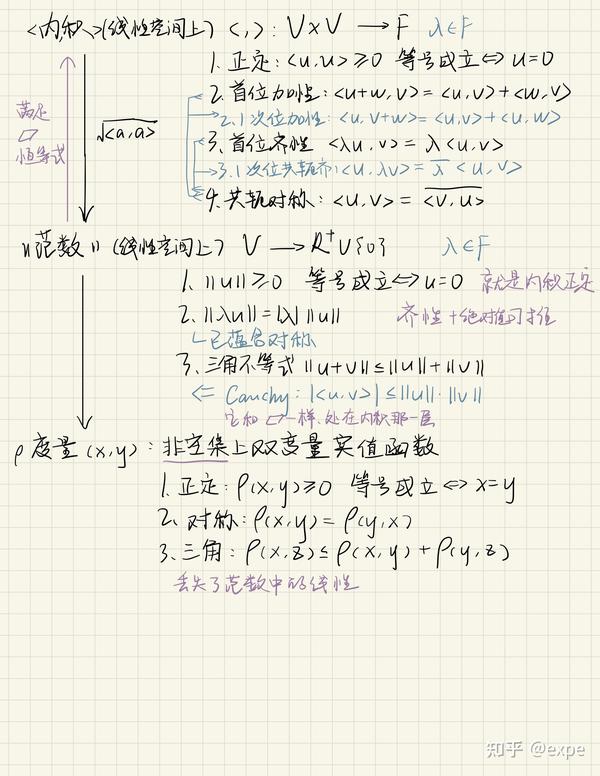 <内积>(线性空间上) < , > : V×V → F λ∈F
1. 正定: <u,u> ≥ 0 等号成立 ⇔ u=0
2. 首位加性: <u+w, v> = <u,v> + <w,v>
2.1 次位加性: <u, v+w> = <u,v> + <u,w>
满足
▱
恒等式
√<a,a>
3. 首位齐性 <λu, v> = λ<u,v>
3.1 次位共轭齐: <u, λv> = λ̅ <u,v>
4. 共轭对称: <u,v> = \overline{<v,u>}
‖范数‖ (线性空间上) V → R⁺∪{0} λ∈F
1. ‖u‖ ≥ 0 等号成立 ⇔ u=0 就是内积正定
2. ‖λu‖ = |λ| ‖u‖ 齐性+绝对值
已蕴含对称
3. 三角不等式 ‖u+v‖ ≤ ‖u‖ + ‖v‖
⇐ Cauchy: |<u,v>| ≤ ‖u‖·‖v‖
它和▱一样,处在内积那一层
ρ度量(x,y): 非空集上双变量实值函数
1. 正定: ρ(x,y) ≥ 0 等号成立 ⇔ x=y
2. 对称: ρ(x,y) = ρ(y,x)
3. 三角: ρ(x,z) ≤ ρ(x,y) + ρ(y,z)
丢失了范数中的线性
知乎 @expe